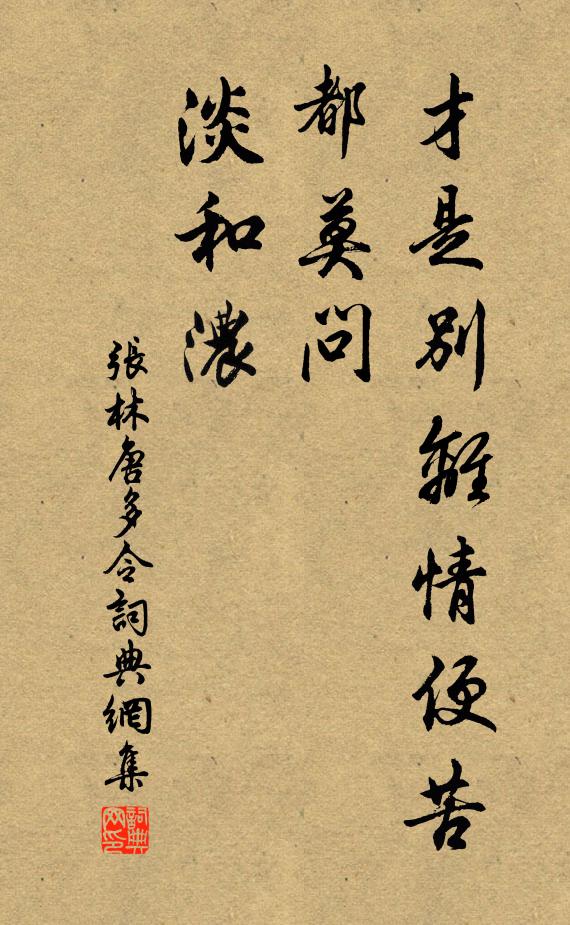 才是別離情便苦
都莫問
淡和濃
張林唐多令詞典網集
詞典
网印